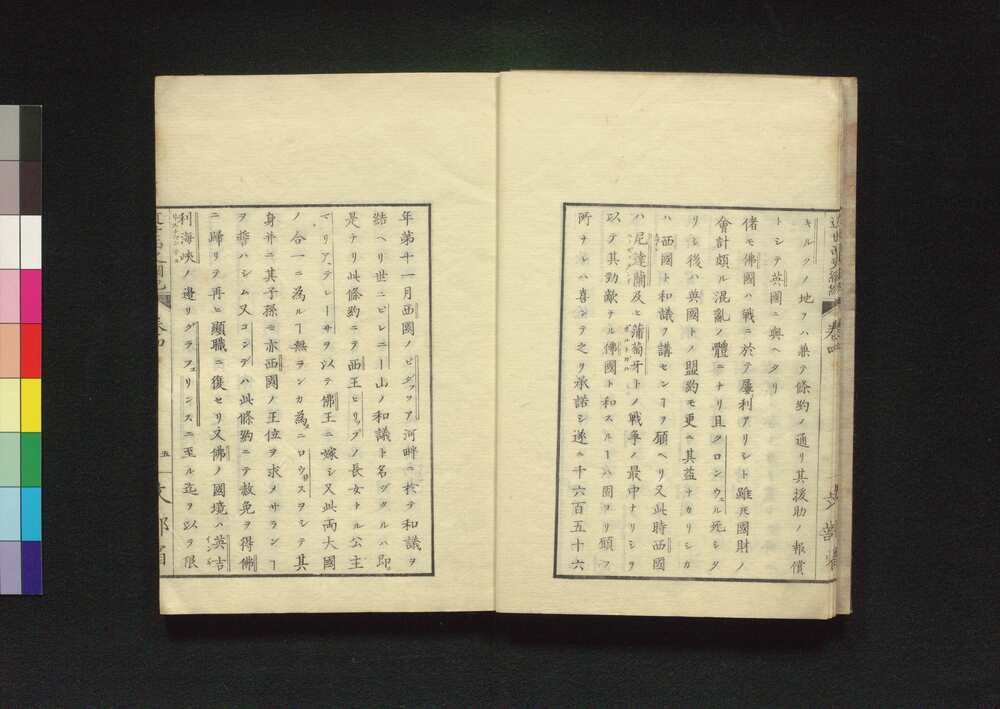 キルクノ地ヲハ兼テ條約ノ通リ其援助ノ報償
トシテ英國ニ與ヘタリ
偖モ佛國ハ戰ニ於テ屢利アリシト雖𪜈國財ノ
會計頗ル混亂ノ體ニナリ且クロンウェル死シタ
リシ後ハ英國トノ盟約モ更ニ其益ナカリシカ
ハ西國ト和議ヲ講センヿヲ願ヘリ又此時西國
ハ尼達蘭及ヒ蒲萄牙トノ戰爭ノ最中ナリシヲ
以テ其勁敵テル佛國ト和スルーハ固ヨリ願フ
所ナレハ喜ンテ之ヲ承諾シ遂ニ千六百五十六
年第十一月西國ノビダッソア河畔ニ於テ和議ヲ
結ヘリ世ニピレニー山ノ和議ト名ヅクルハ即
是テリ此條約ニテ西王ヒリップノ長女トル公主
マリア、テレーサヲ以テ佛王ニ嫁シ又此兩大國
ノ合一ニ為ルヿ無ランカ為ニロウ井スヲシテ其
身并ニ其子孫モ亦西國ノ王位ヲ求メサランヿ
ヲ誓ハシム又コンデハ此條約ニテ赦免ヲ得佛
ニ歸リテ再ヒ顯職ニ復セリ又佛ノ國境ハ英吉
利海峽ノ邊リグラフェリンスニ至ル迄ヲ以テ限
卷四
五
文部省